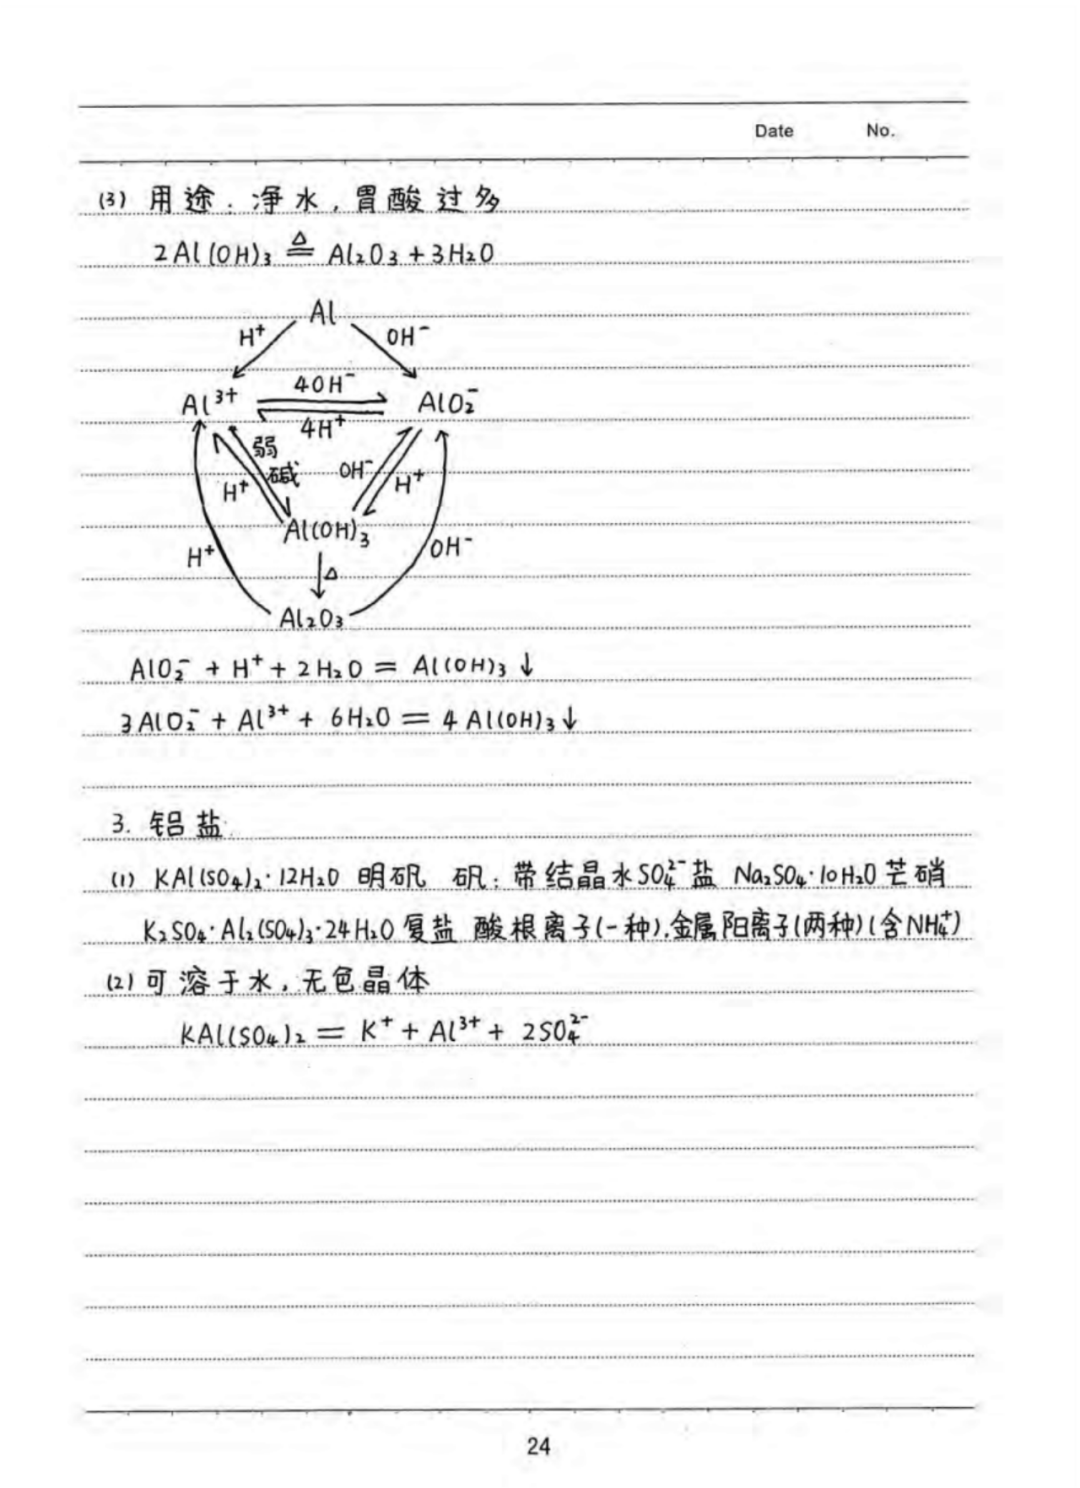 Date No.
(3) 用途:净水,胃酸过多
2Al(OH)₃ ≜ Al₂O₃+3H₂O
Al
H⁺ OH⁻
4OH⁻
Al³⁺ AlO₂⁻
4H⁺
弱
碱 OH⁻
H⁺ H⁺
Al(OH)₃
H⁺ OH⁻
△
Al₂O₃
AlO₂⁻ + H⁺ + 2H₂O = Al(OH)₃↓
3AlO₂⁻ + Al³⁺ + 6H₂O = 4Al(OH)₃↓
3. 铝盐
(1) KAl(SO₄)₂·12H₂O 明矾 矾:带结晶水SO₄²⁻盐 Na₂SO₄·10H₂O芒硝
K₂SO₄·Al₂(SO₄)₃·24H₂O复盐 酸根离子(一种).金属阳离子(两种)(含NH₄⁺)
(2)可溶于水,无色晶体
KAl(SO₄)₂ = K⁺ + Al³⁺ + 2SO₄²⁻
24